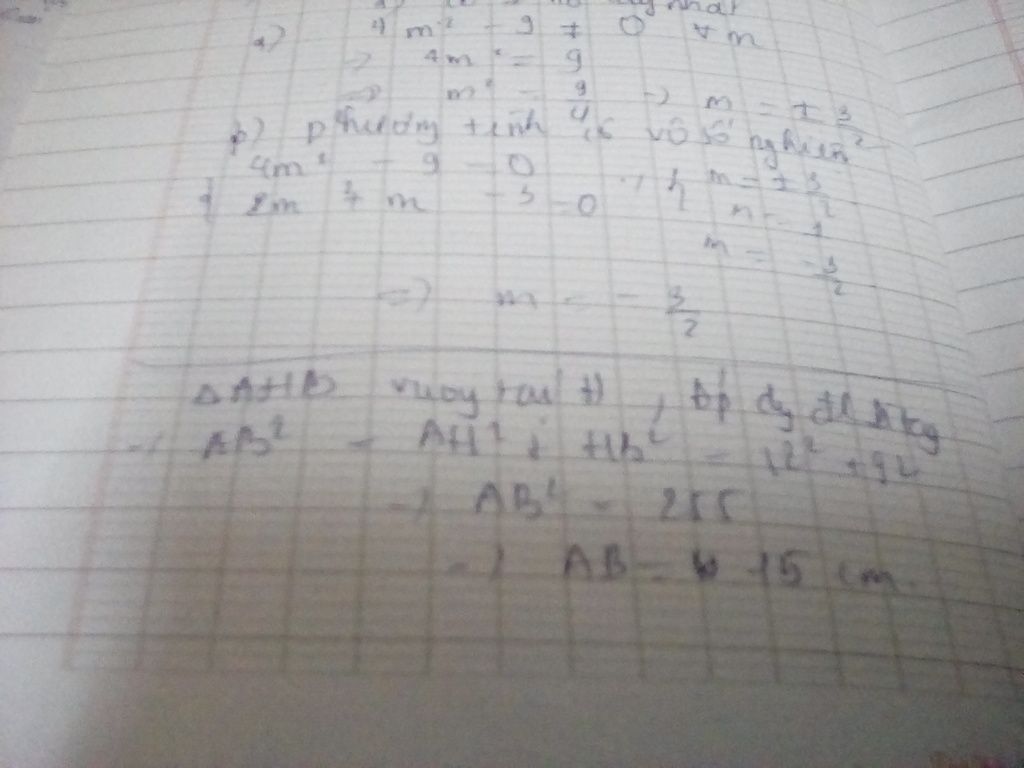 a) 4m² - 9 ≠ 0 ∀ m
=> 4m² = 9
=> m² = 9/4 => m = ± 3/2
b) phương tình có vô số nghiệm
4m² - 9 = 0 m = ± 3/2
2m² + m - 3 = 0 m = 1
m = - 3/2
=> m = - 3/2
Δ AHB vuông tại H, áp dg đl
=> AB² = AH² + HB² = 12² + 92
=> AB² = 255
=> AB = 15 cm.